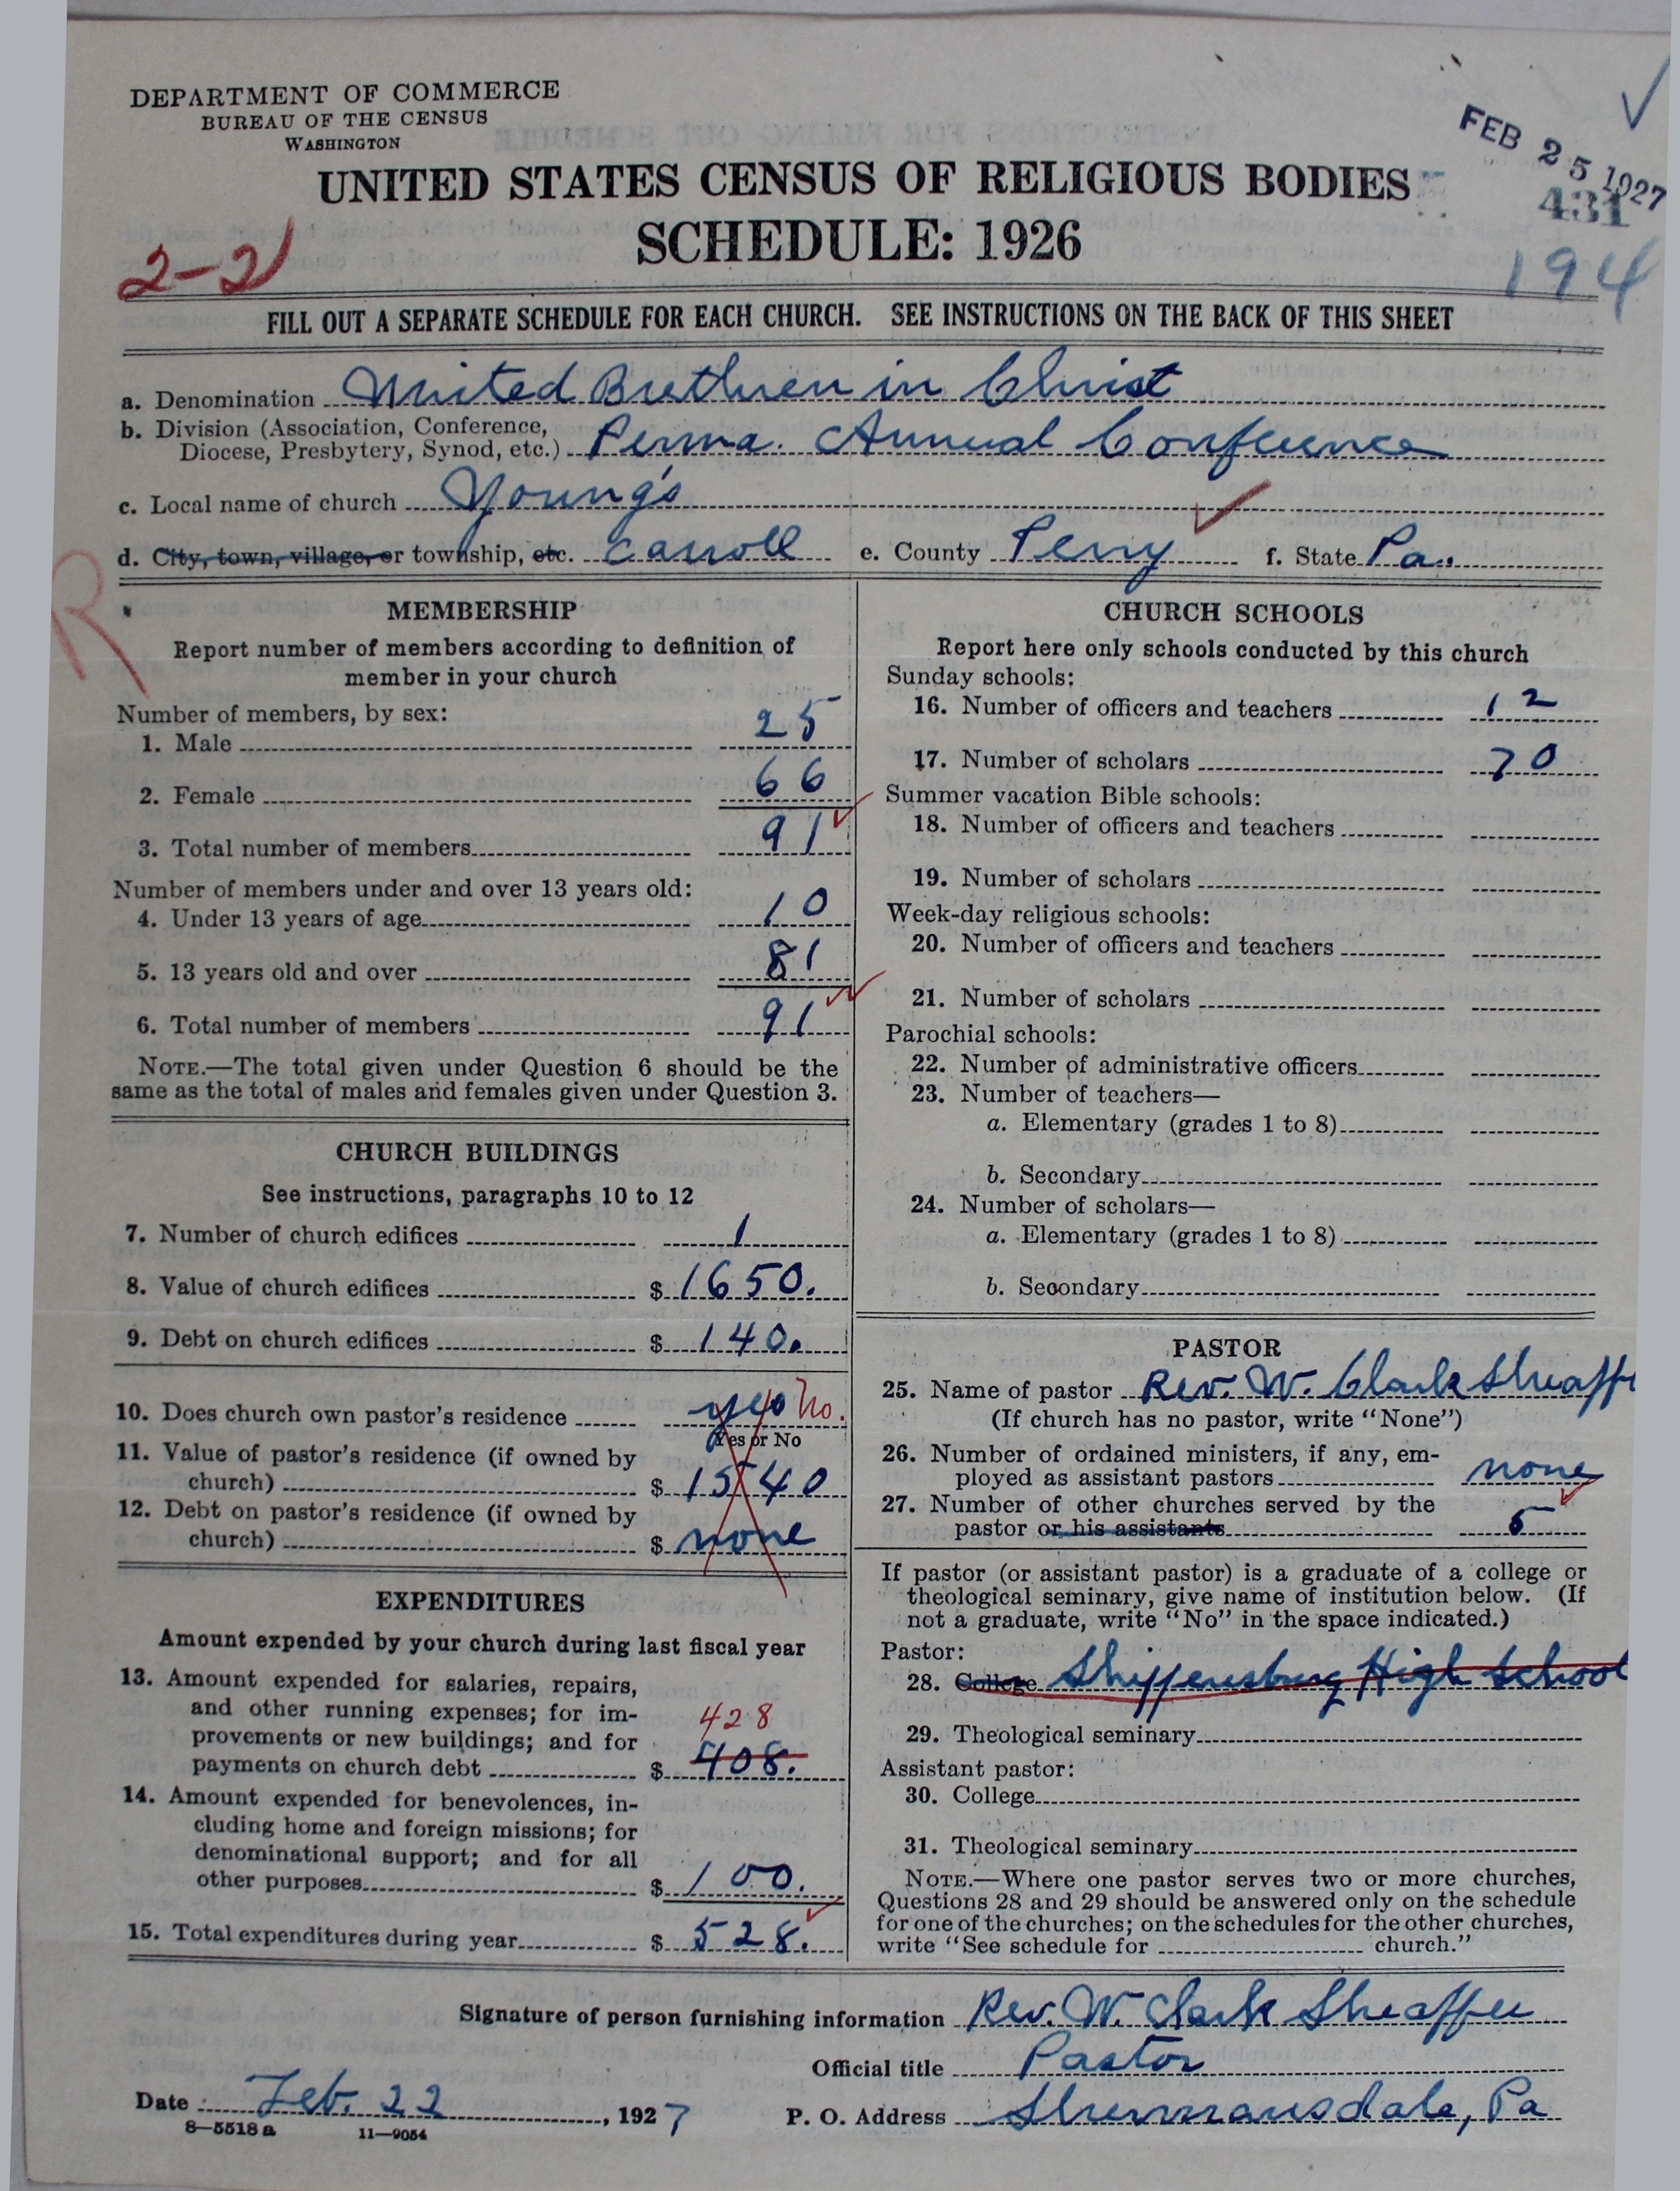 DEPARTMENT OF COMMERCE
BUREAU OF THE CENSUS
WASHINGTON
FEB 25 1927
431
194
UNITED STATES CENSUS OF RELIGIOUS BODIES
SCHEDULE: 1926
2-21
FILL OUT A SEPARATE SCHEDULE FOR EACH CHURCH. SEE INSTRUCTIONS ON THE BACK OF THIS SHEET
a. Denomination United Brethren in Christ
b. Division (Association, Conference,
Diocese, Presbytery, Synod, etc.) Penna. Annual Conference
c. Local name of church Young's
d. City, town, village, or township, etc. Carroll e. County Perry f. State Pa.
R
MEMBERSHIP
Report number of members according to definition of
member in your church
Number of members, by sex:
1. Male 25
2. Female 66
3. Total number of members 91
Number of members under and over 13 years old:
4. Under 13 years of age 10
5. 13 years old and over 81
6. Total number of members 91
NOTE.—The total given under Question 6 should be the
same as the total of males and females given under Question 3.
CHURCH BUILDINGS
See instructions, paragraphs 10 to 12
7. Number of church edifices 1
8. Value of church edifices $ 1650.
9. Debt on church edifices $ 140.
10. Does church own pastor's residence yes No.
Yes or No
11. Value of pastor's residence (if owned by
church) $ 1540
12. Debt on pastor's residence (if owned by
church) $ none
EXPENDITURES
Amount expended by your church during last fiscal year
13. Amount expended for salaries, repairs,
and other running expenses; for im-
provements or new buildings; and for 428
payments on church debt $ 408.
14. Amount expended for benevolences, in-
cluding home and foreign missions; for
denominational support; and for all
other purposes $ 100.
15. Total expenditures during year $ 528.
CHURCH SCHOOLS
Report here only schools conducted by this church
Sunday schools:
16. Number of officers and teachers 12
17. Number of scholars 70
Summer vacation Bible schools:
18. Number of officers and teachers
19. Number of scholars
Week-day religious schools:
20. Number of officers and teachers
21. Number of scholars
Parochial schools:
22. Number of administrative officers
23. Number of teachers—
a. Elementary (grades 1 to 8)
b. Secondary
24. Number of scholars—
a. Elementary (grades 1 to 8)
b. Secondary
PASTOR
25. Name of pastor Rev. W. Clark Sheaffe
(If church has no pastor, write "None")
26. Number of ordained ministers, if any, em-
ployed as assistant pastors none
27. Number of other churches served by the
pastor or his assistants 5
If pastor (or assistant pastor) is a graduate of a college or
theological seminary, give name of institution below. (If
not a graduate, write "No" in the space indicated.)
Pastor:
28. College Shippensburg High School
29. Theological seminary
Assistant pastor:
30. College
31. Theological seminary
NOTE.—Where one pastor serves two or more churches,
Questions 28 and 29 should be answered only on the schedule
for one of the churches; on the schedules for the other churches,
write "See schedule for church."
Signature of person furnishing information Rev. W. Clark Sheaffer
Official title Pastor
Date Feb. 22, 1927 P. O. Address Shermansdale, Pa
8—5518 a 11—9054